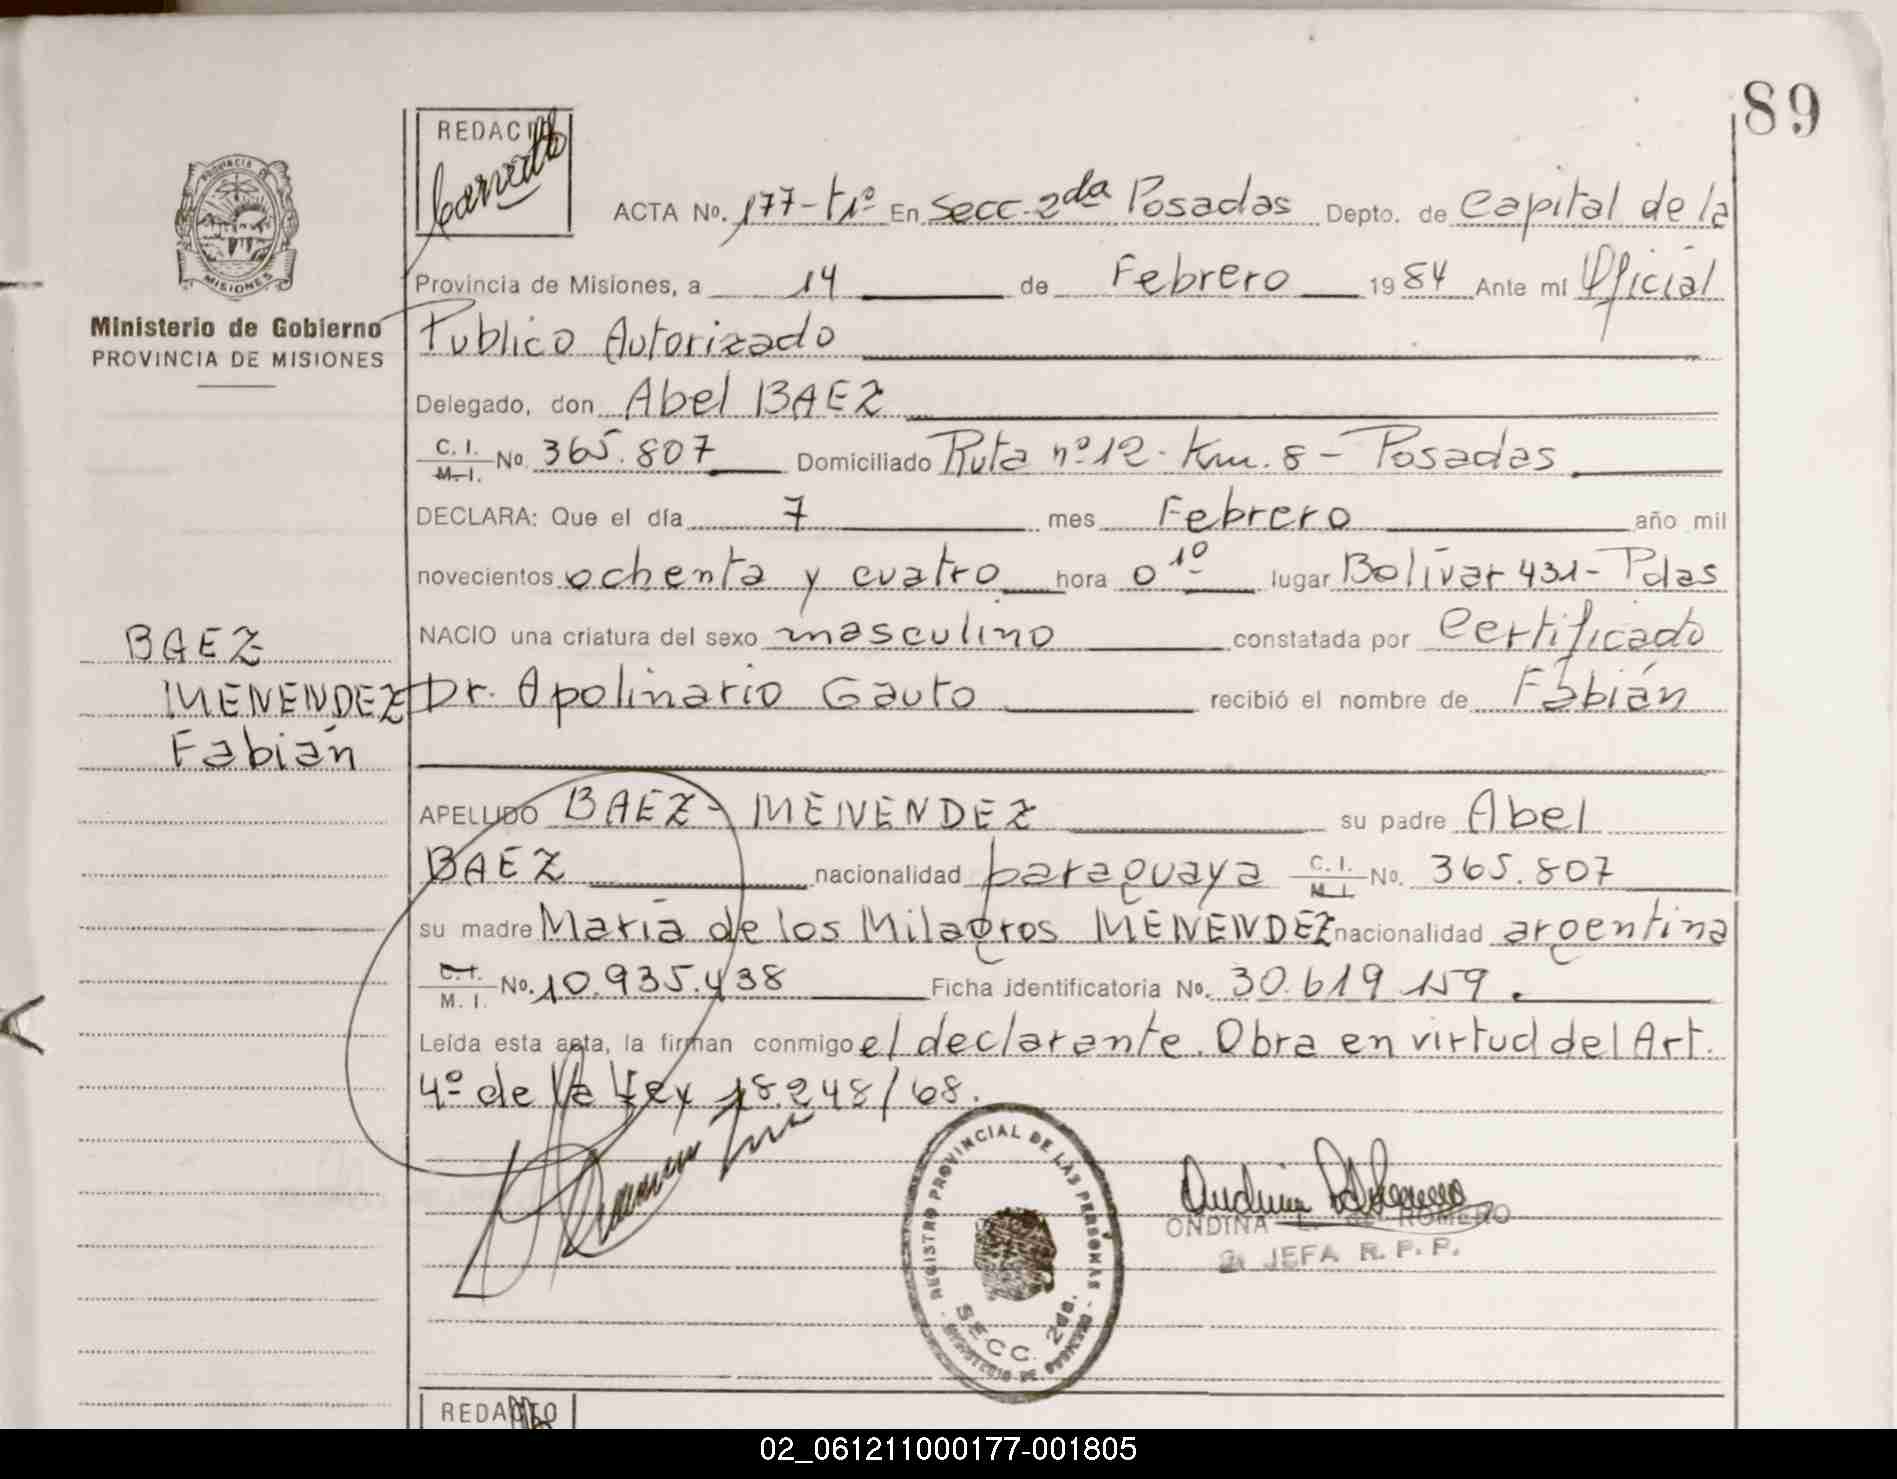 89
REDACTO
ACTA No. 177-t1º En Secc. 2da Posadas Depto. de Capital de la
Provincia de Misiones, a 14 de Febrero 1984 Ante mi Oficial
Publico Autorizado
Delegado, don Abel BAEZ
C. I. M. I. No. 365.807 Domiciliado Ruta nº 12. Km. 8 - Posadas
DECLARA: Que el día 7 mes Febrero año mil
novecientos ochenta y cuatro hora 0 1º lugar Bolívar 431 - Pdas
NACIO una criatura del sexo masculino constatada por Certificado
Dr. Apolinario Gauto recibió el nombre de Fabián
APELLIDO BAEZ - MENENDEZ su padre Abel
BAEZ nacionalidad paraguaya C. I. M. I. No. 365.807
su madre María de los Milagros MENENDEZ nacionalidad argentina
C. I. M. I. No. 10.935.438 Ficha identificatoria No. 30.619.159.
Leída esta acta, la firman conmigo el declarante. Obra en virtud del Art.
4º de la Ley 18.248/68.
Ministerio de Gobierno
PROVINCIA DE MISIONES
BAEZ
MENENDEZ
Fabián
PROVINCIA DE
MISIONES
REGISTRO PROVINCIAL DE LAS PERSONAS
SECC. 2da.
MINISTERIO DE GOBIERNO
ONDINA ROMERO
JEFA R. P. P.
REDACTO
02_061211000177-001805